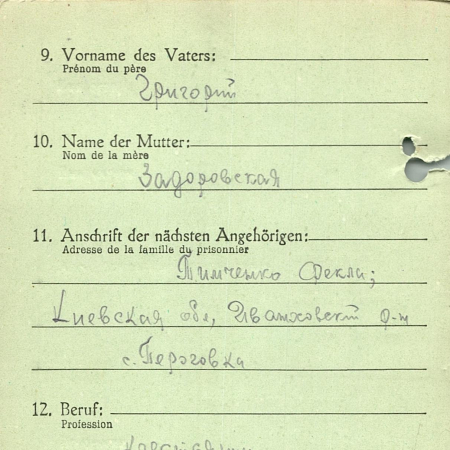 9. Vorname des Vaters:
Prénom du père
Григорий
10. Name der Mutter:
Nom de la mère
Задоровская
11. Anschrift der nächsten Angehörigen:
Adresse de la famille du prisonnier
Тимченко Фекла;
Киевская обл, Иванковский р-н
с. Пероговка
12. Beruf:
Profession